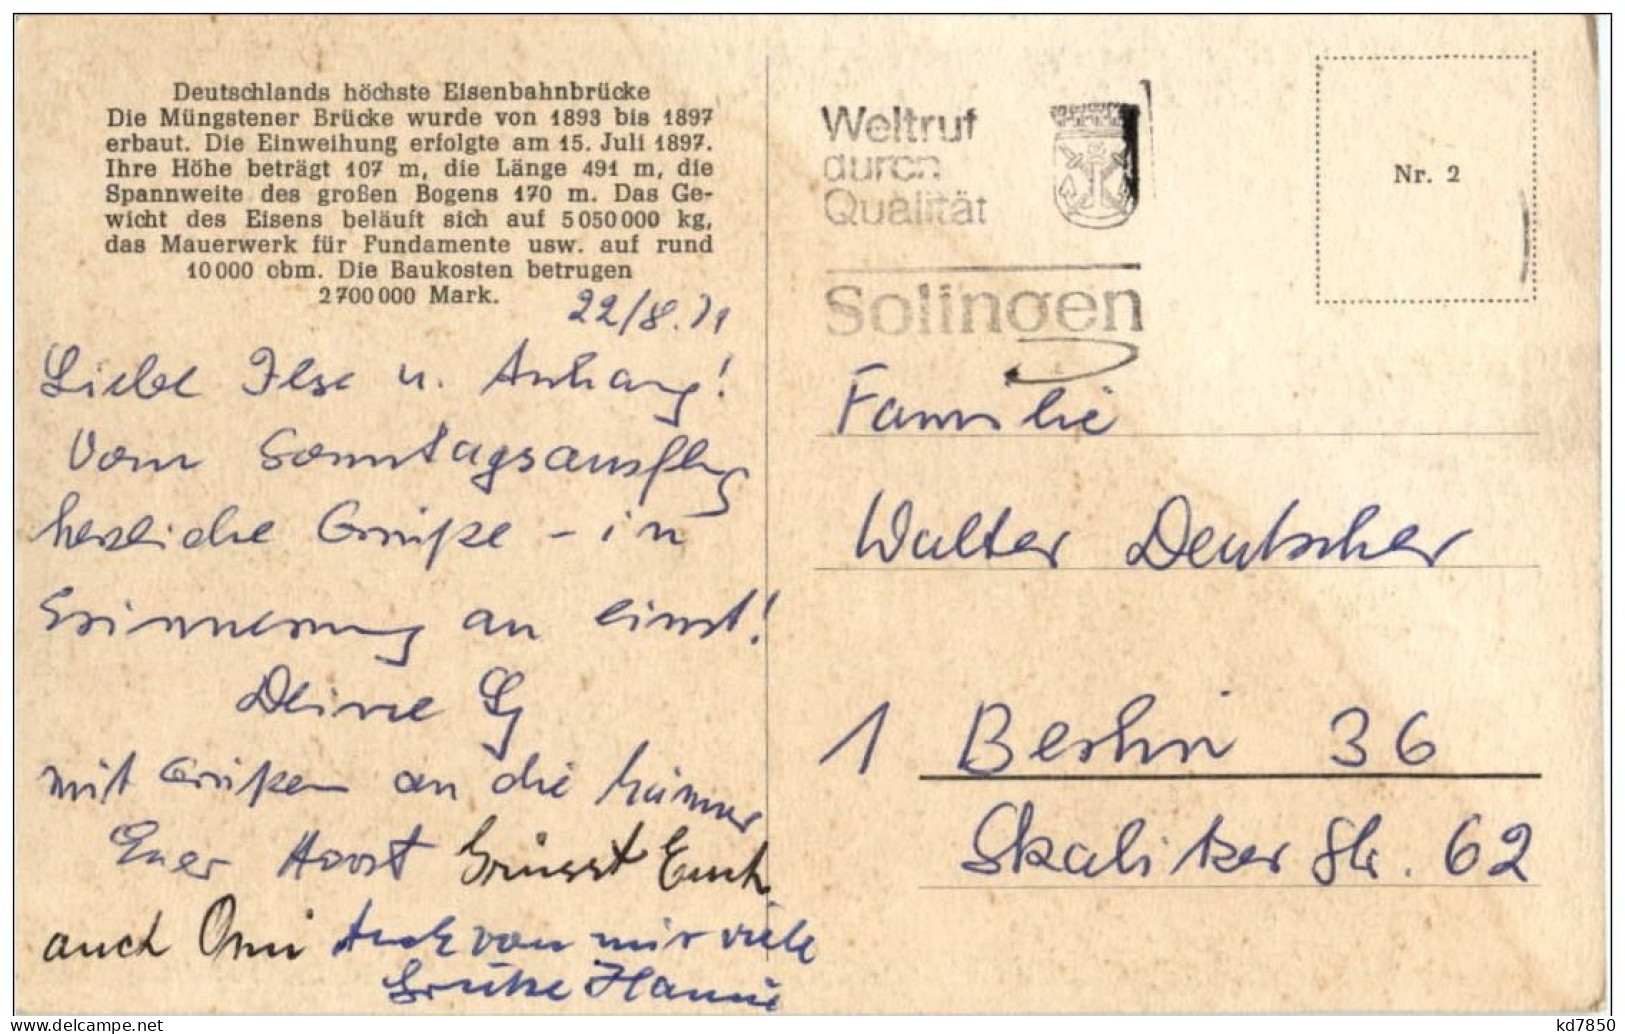 Deutschlands höchste Eisenbahnbrücke
Die Müngstener Brücke wurde von 1893 bis 1897
erbaut. Die Einweihung erfolgte am 15. Juli 1897.
Ihre Höhe beträgt 107 m, die Länge 491 m, die
Spannweite des großen Bogens 170 m. Das Ge-
wicht des Eisens beläuft sich auf 5050000 kg,
das Mauerwerk für Fundamente usw. auf rund
10000 cbm. Die Baukosten betrugen
2700000 Mark.
22/8.71
Liebe Ilse u. Anhang!
Vom Sonntagsausflug
herzliche Grüße - in
Erinnerung an einst!
Deine
mit Grüßen an die Männer
Euer Horst Grüsst Euch
auch Omi Auch von mir viele
Grüße Hanni
Weltruf
durch
Qualität
Solingen
Nr. 2
Familie
Walter Deutscher
1 Berlin 36
Skalitzer Str. 62
kd7850